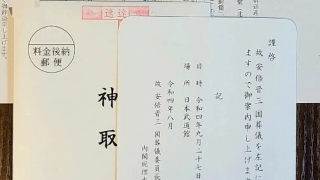 謹啓
故 安倍晋三 国葬儀を左記に
ますので御案内申し上げます
記
日時 令和四年九月二十七日
場所 日本武道館
令和四年八月
故 安倍晋三 国葬儀委員
内閣総理大
料金後納
郵便
神取